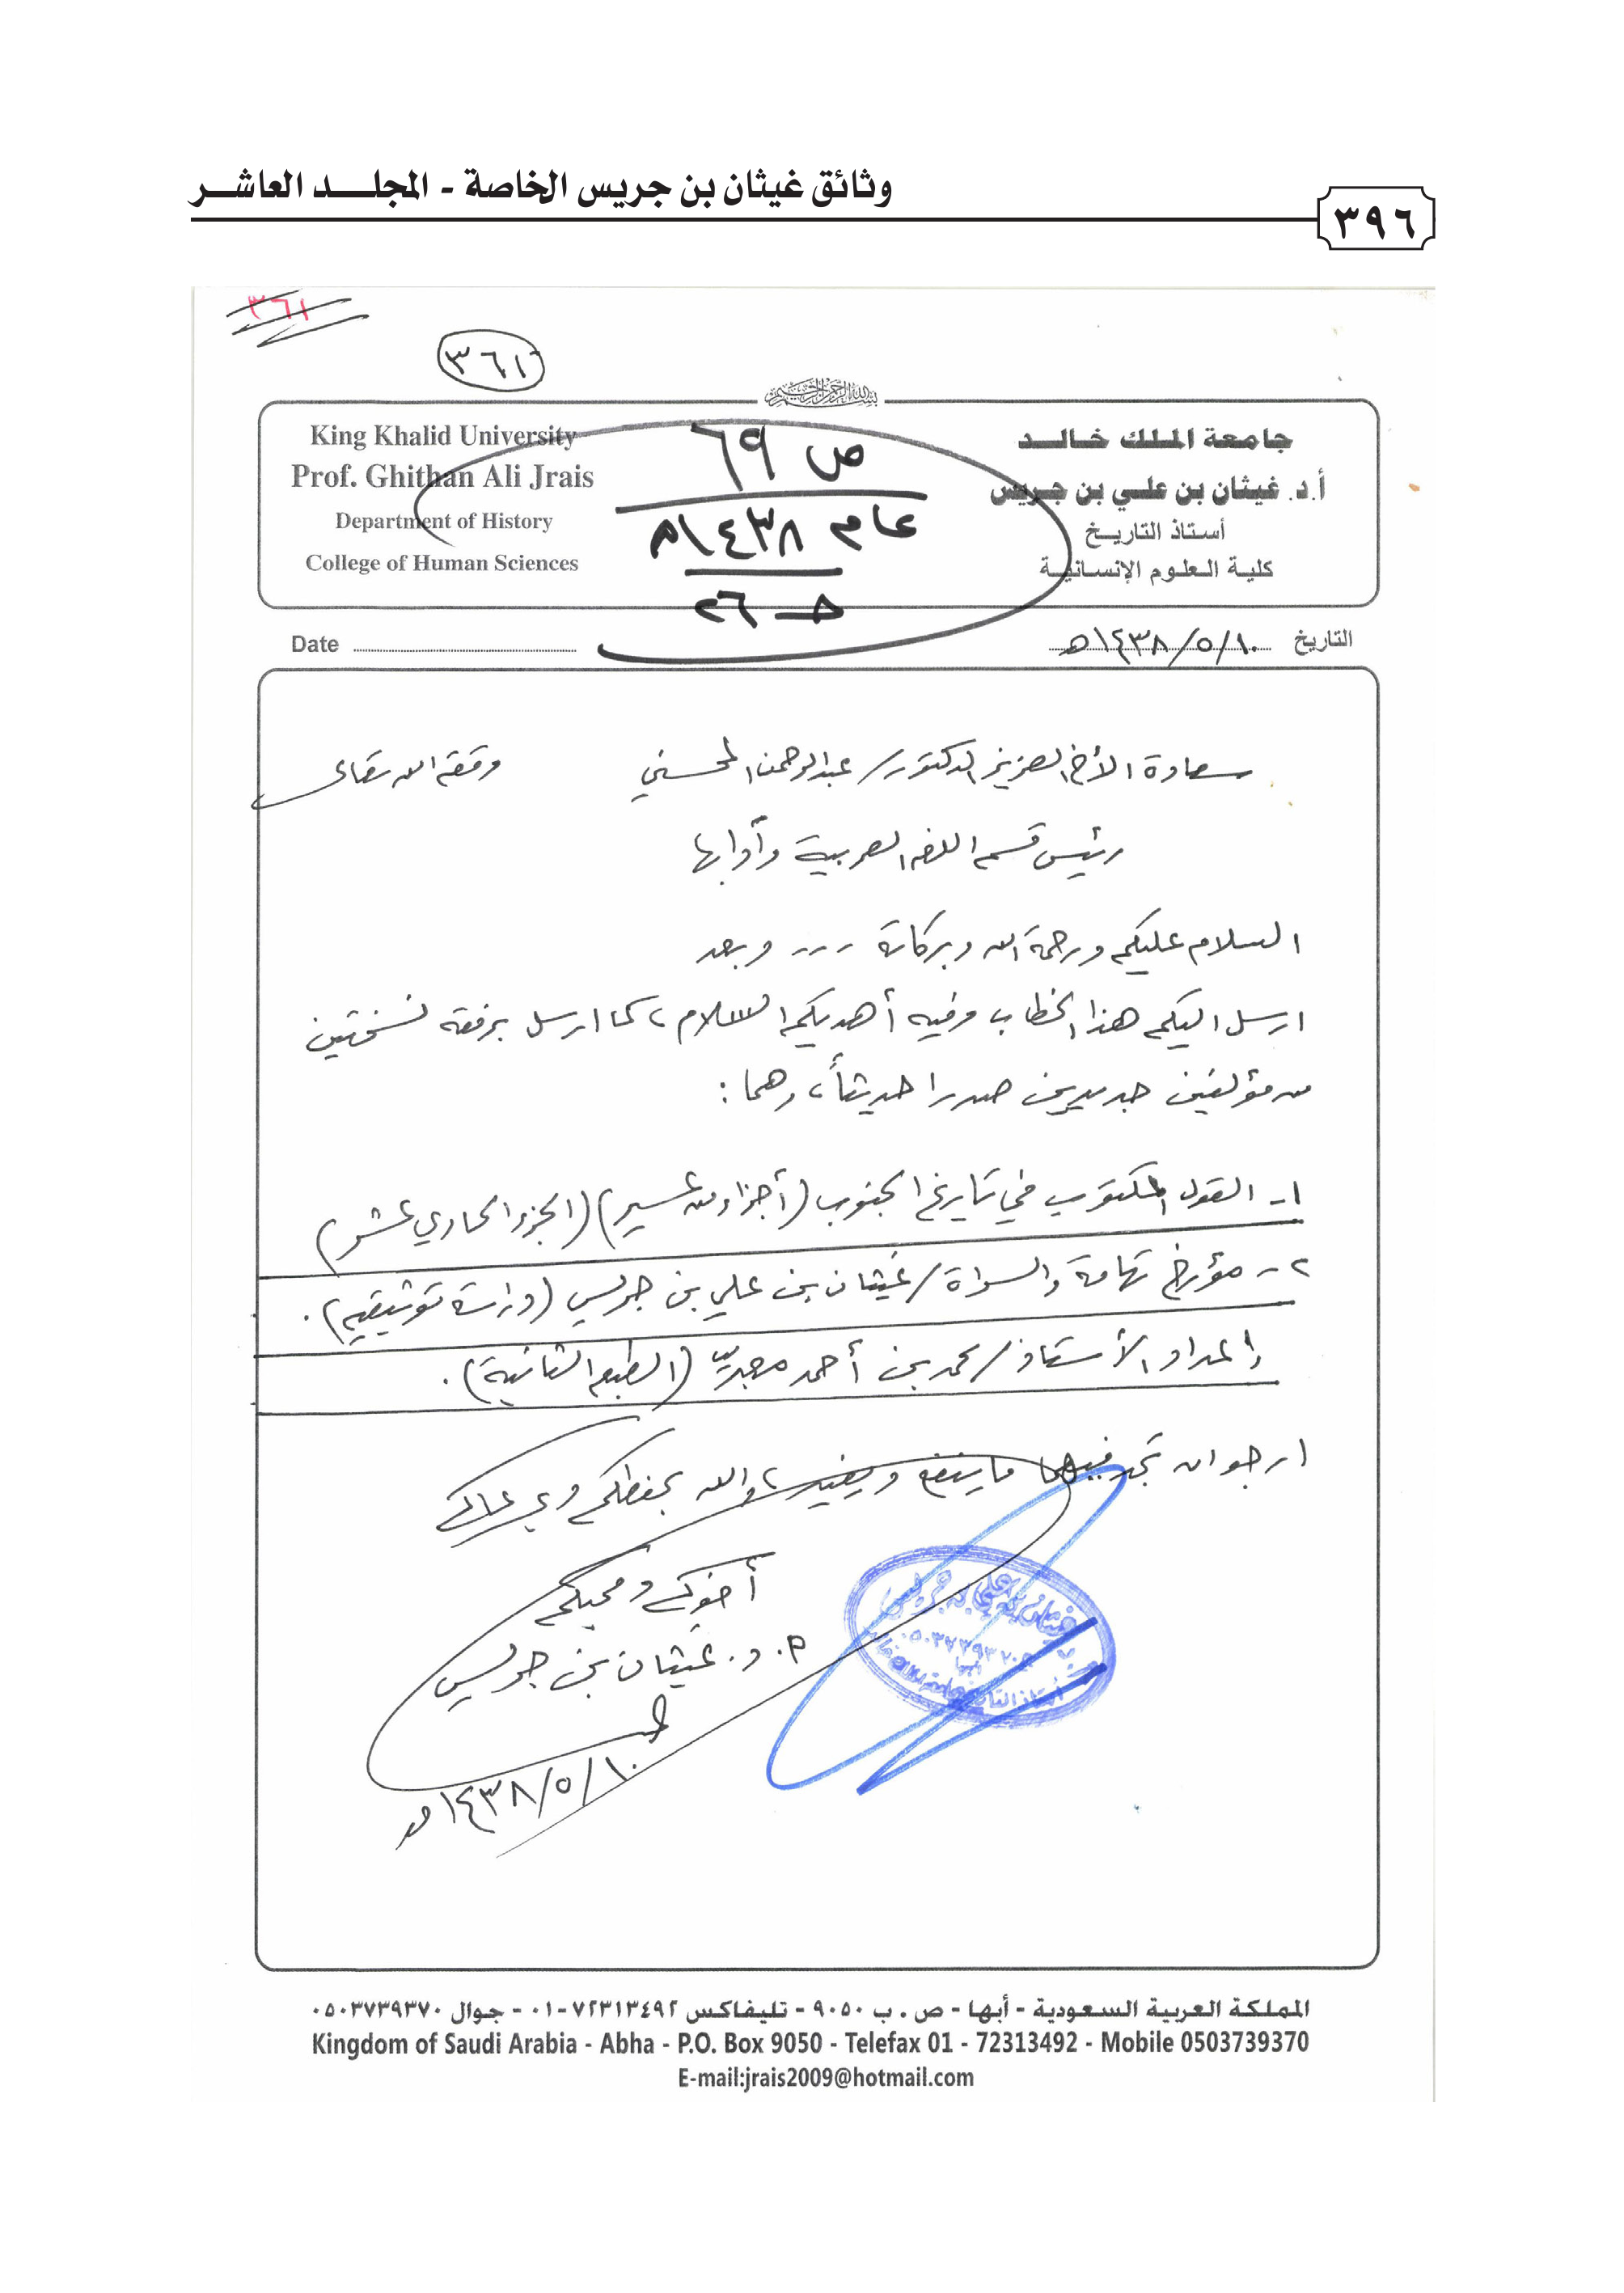 وثائق غيثان بن جريس الخاصة - المجلد العاشر
٣٩٦
٣٦١
٣٦١
بسم الله الرحمن الرحيم
جامعة الملك خالد
أ.د. غيثان بن علي بن جريس
أستاذ التاريخ
كلية العلوم الإنسانية
ص ٦٩
عام ١٤٣٨هـ
King Khalid University
Prof. Ghithan Ali Jrais
Department of History
College of Human Sciences
التاريخ ١٤٣٨/٥/١٠هـ
Date
سعادة الأخ العزيز الدكتور/ عبدالرحمن المحسني وفقه الله تعالى
رئيس قسم اللغة العربية وآدابها
السلام عليكم ورحمة الله وبركاته --- وبعد
ارسل اليكم هذا الخطاب وفيه أهديكم السلام، كما ارسل برفقه نسختين
من مؤلفين جديدين صدرا حديثاً، وهما:
١- القول المكتوب في تاريخ الجنوب (أجزاء من عسير) (الجزء الحادي عشر)
٢- مؤرخ تهامة والسراة/ غيثان بن علي بن جريس (دراسة توثيقية).
إعداد الأستاذ/ محمد بن أحمد معبر (الطبعة الثانية).
ارجو ان تجد فيهما ما ينفع ويفيد، والله يحفظكم ويرعاكم
أخوكم ومحبكم
أ. د. غيثان بن جريس
١٤٣٨/٥/١٠هـ
المملكة العربية السعودية - أبها - ص . ب ٩٠٥٠ - تليفاكس ٧٢٣١٣٤٩٢-٠١ - جوال ٠٥٠٣٧٣٩٣٧٠
Kingdom of Saudi Arabia - Abha - P.O. Box 9050 - Telefax 01 - 72313492 - Mobile 0503739370
E-mail:jrais2009@hotmail.com